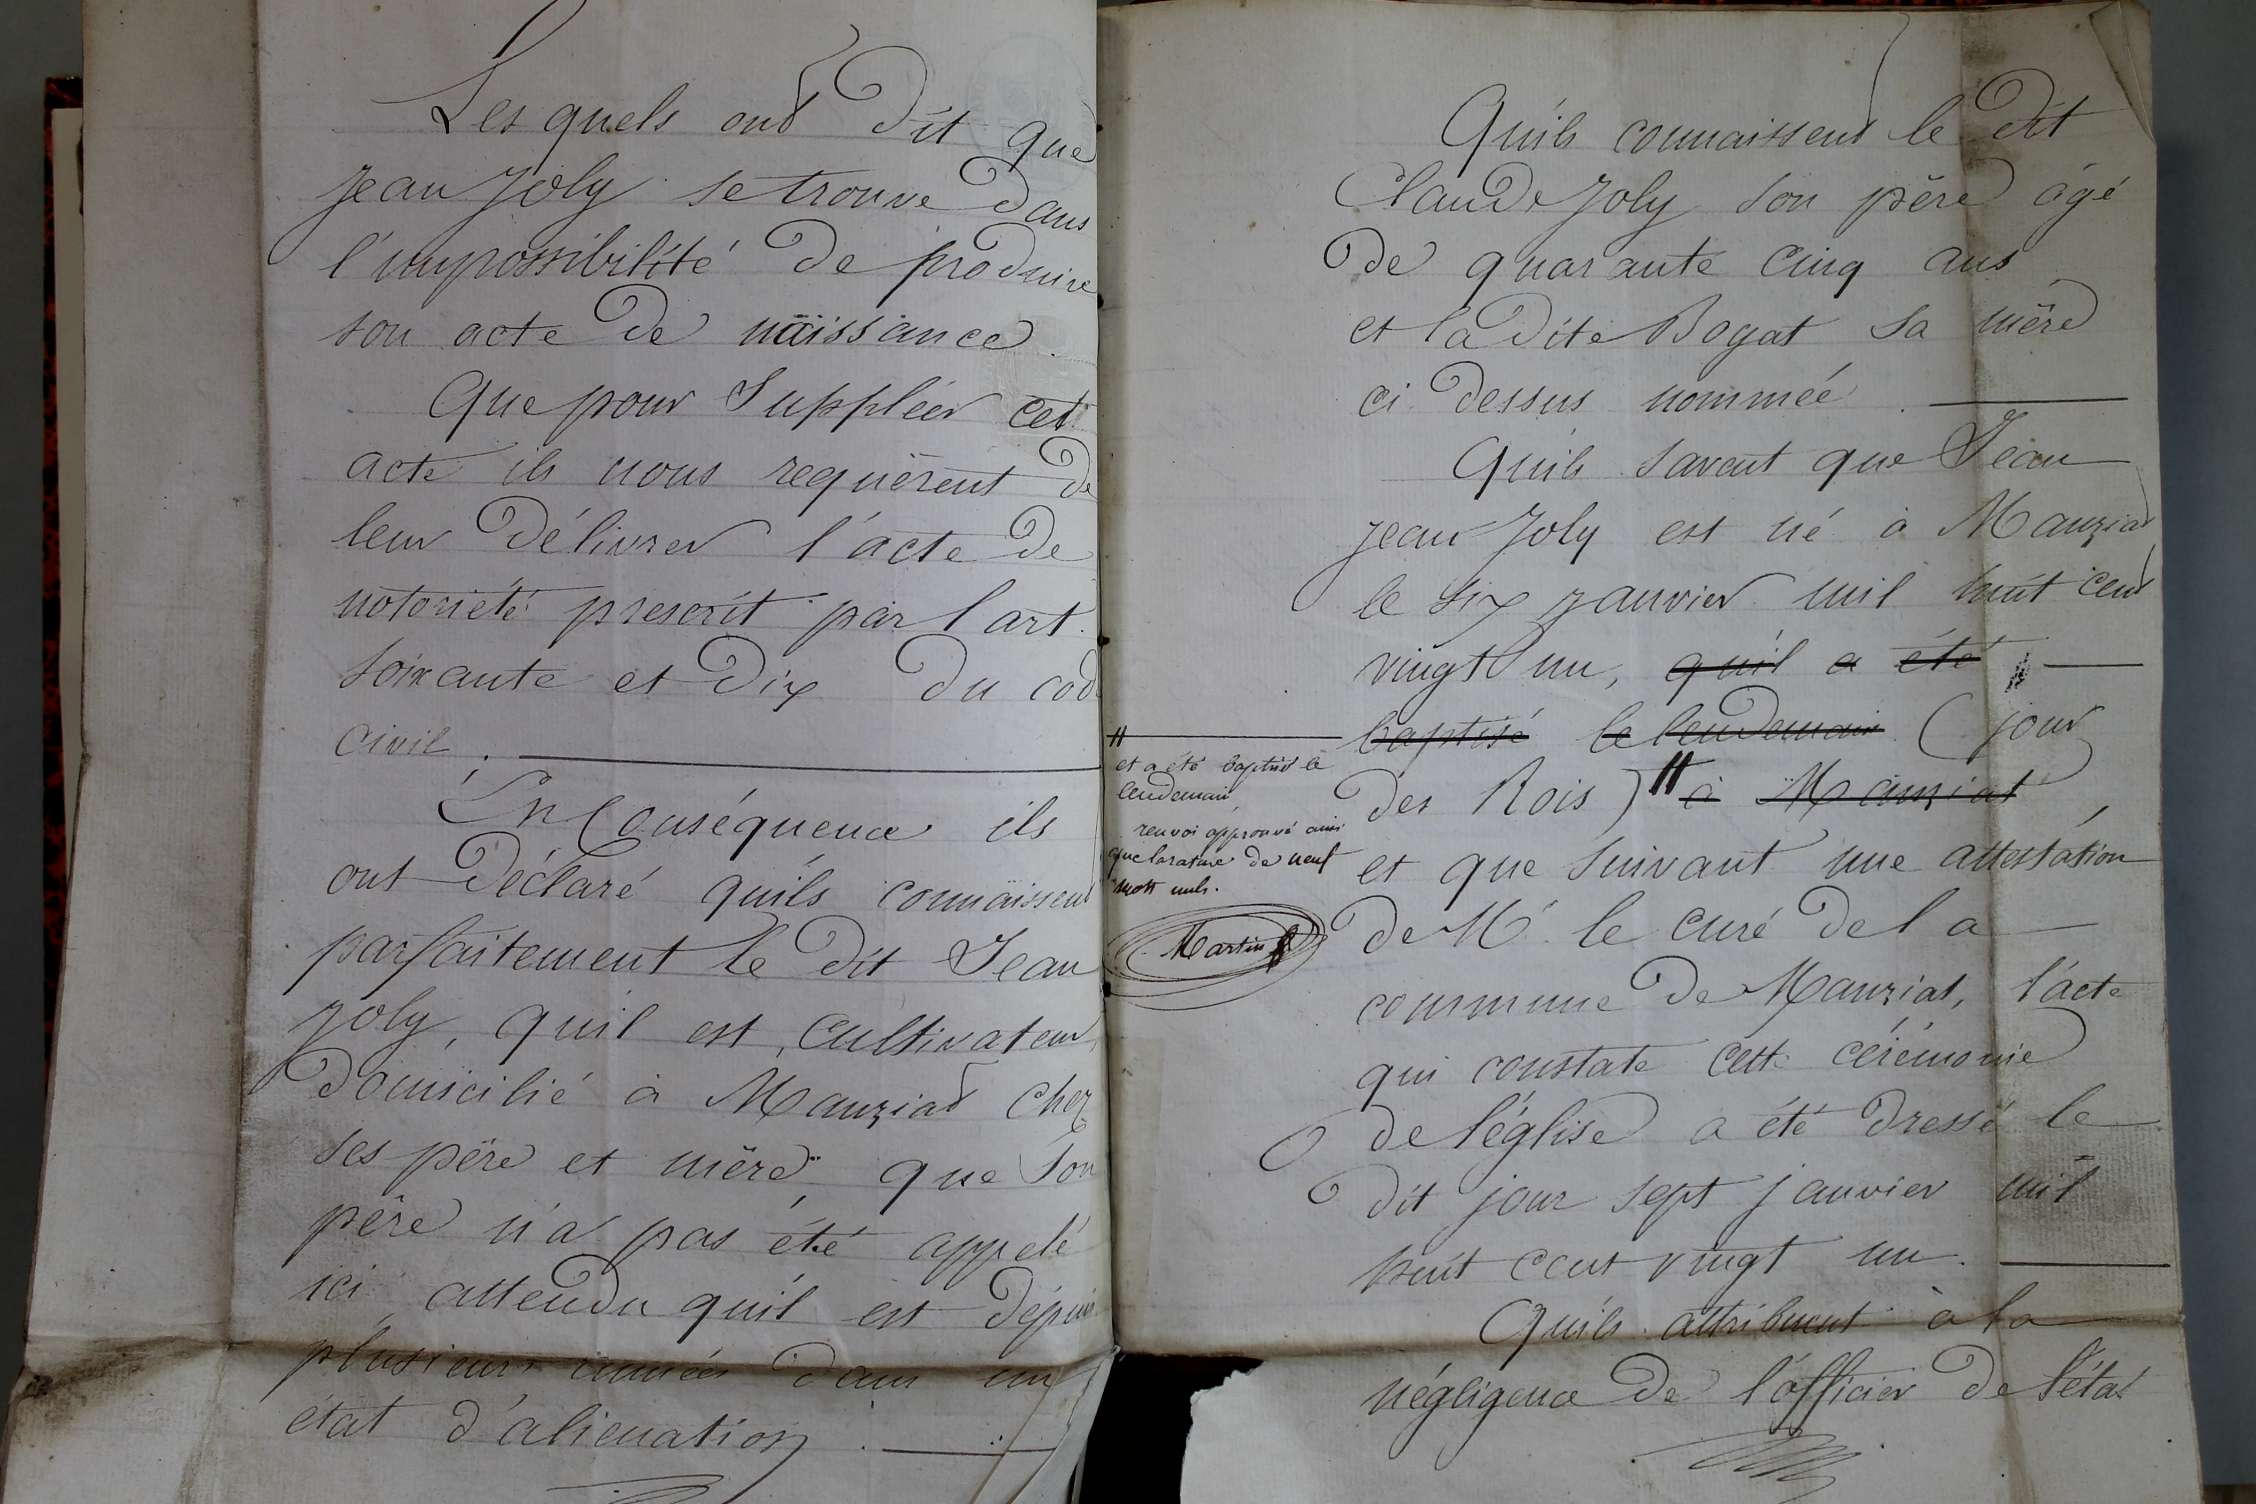 Les quels ont dit que
Jean Joly se trouve dans
l'impossibilité de produire
son acte de naissance.
Que pour Suppléer cet
acte ils nous requièrent de
leur délivrer l'acte de
notoriété prescrit par l'art.
soixante et dix du cod
civil.
En Conséquence ils
ont déclaré qu'ils connaissent
parfaitement le dit Jean
Joly, qu'il est, cultivateur,
domicilié à Manziat chez
ses père et mère, que son
père n'a pas été appelé
ici attendu qu'il est depuis
plusieurs années dans un
état d'alienation.
Qu'ils connaissent le dit
Claude Joly son père âgé
de quarante cinq ans
et la dite Bogat sa mère
ci dessus nommée.
Qu'ils savent que Jean
Jean Joly est né à Manziat
le six janvier mil huit cent
vingt un, qu'il a été
baptisé le lendemain (jour
des Rois) à Manziat,
et que suivant une attestation
de Mr. le curé de la
commune de Manziat, l'acte
qui constate cette cérémonie
de l'église a été dressé le
dit jour sept janvier mil
huit cent vingt un.
Qu'ils attribuent à la
négligence de l'officier de l'état
et a été baptisé le
lendemain,
renvoi approuvé ainsi
que la rature de neuf
mots nuls.
Martin